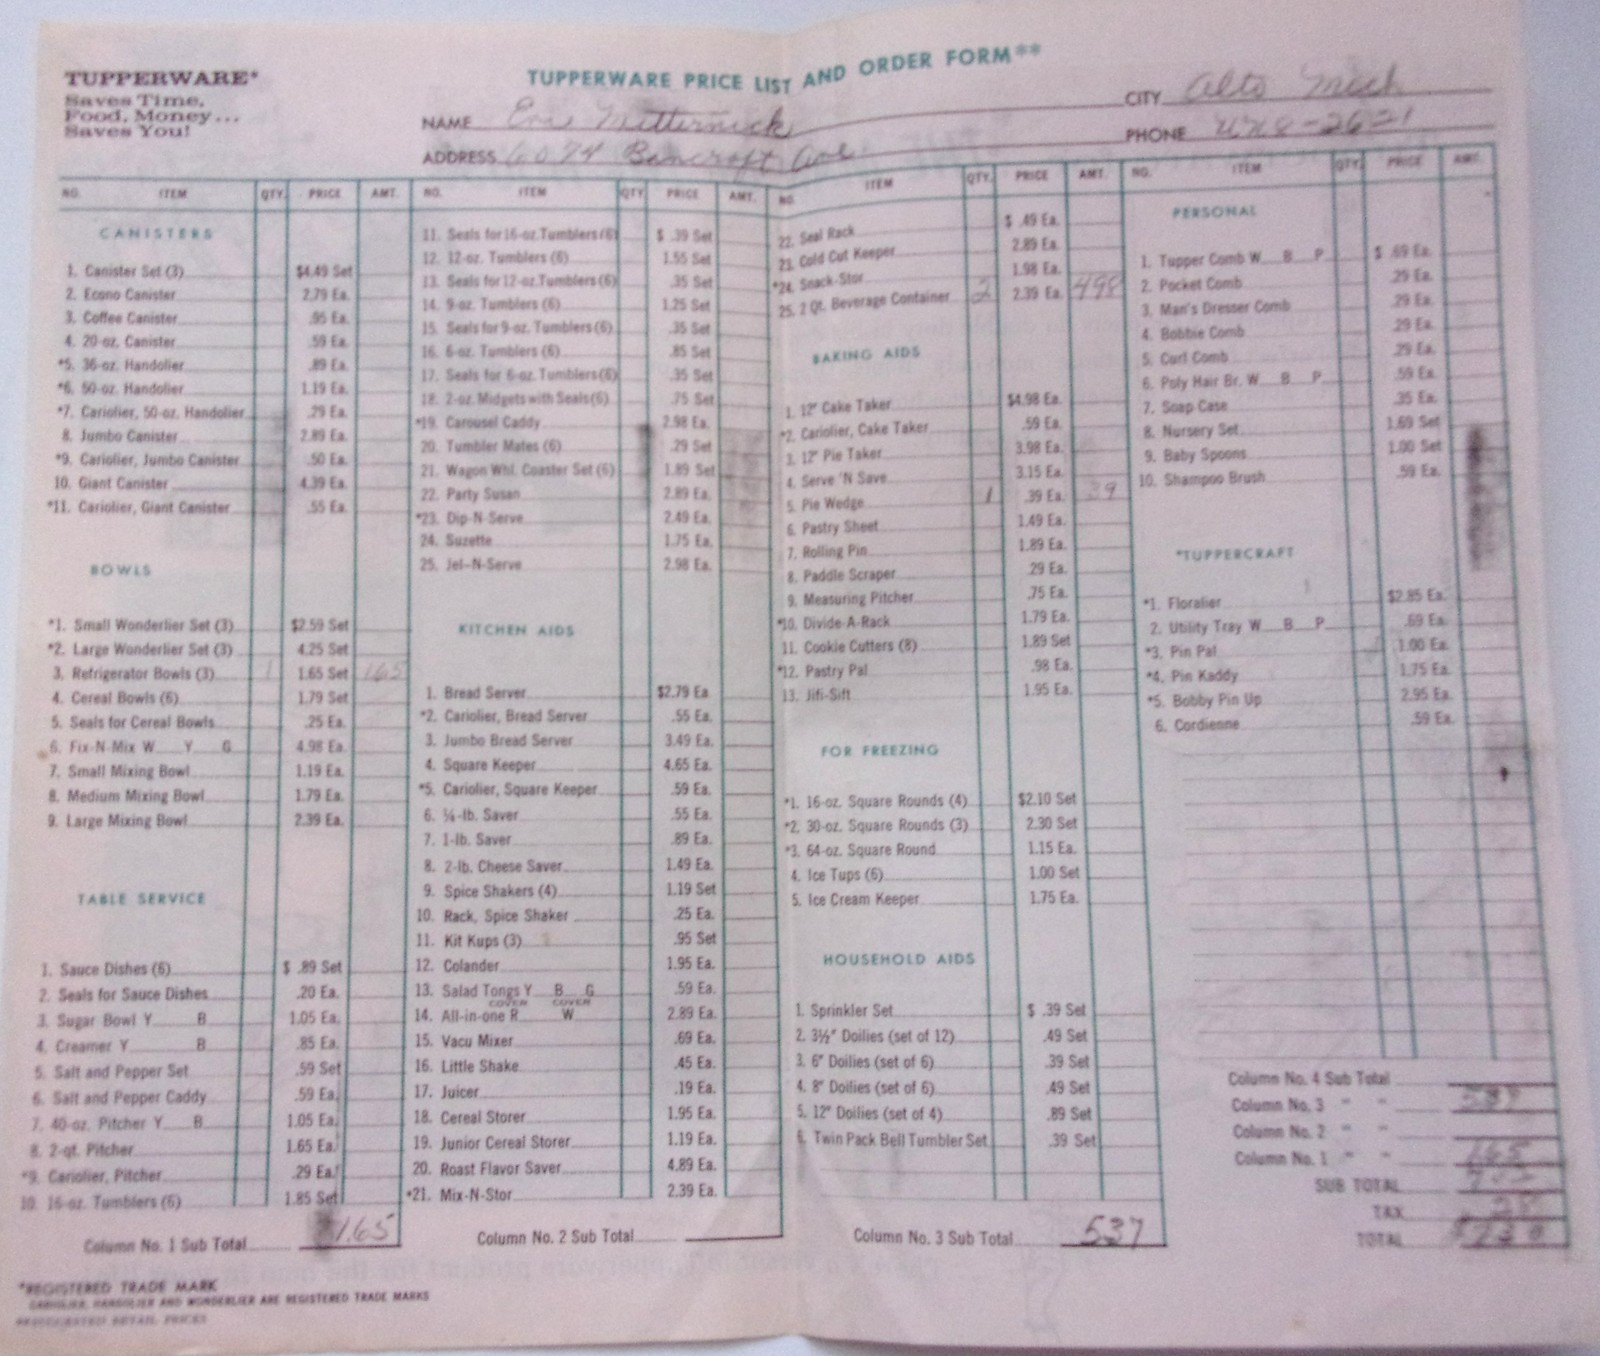 TUPPERWARE*
Saves Time,
Food, Money...
Saves You!
TUPPERWARE PRICE LIST AND ORDER FORM**
NAME
ADDRESS 6074 Bancroft Ave
CITY Alto Mich
PHONE -2621
NO. ITEM QTY. PRICE AMT.
CANISTERS
1. Canister Set (3) $4.49 Set
2. Econo Canister 2.79 Ea.
3. Coffee Canister .95 Ea.
4. 20-oz. Canister .59 Ea.
*5. 36-oz. Handolier .89 Ea.
*6. 50-oz. Handolier 1.19 Ea.
*7. Cariolier, 50-oz. Handolier .29 Ea.
8. Jumbo Canister 2.89 Ea.
*9. Cariolier, Jumbo Canister .50 Ea.
10. Giant Canister 4.39 Ea.
*11. Cariolier, Giant Canister .55 Ea.
BOWLS
*1. Small Wonderlier Set (3) $2.59 Set
*2. Large Wonderlier Set (3) 4.25 Set
3. Refrigerator Bowls (3) 1 1.65 Set 165
4. Cereal Bowls (6) 1.79 Set
5. Seals for Cereal Bowls .25 Ea.
6. Fix-N-Mix W Y G 4.98 Ea.
7. Small Mixing Bowl 1.19 Ea.
8. Medium Mixing Bowl 1.79 Ea.
9. Large Mixing Bowl 2.39 Ea.
TABLE SERVICE
1. Sauce Dishes (6) $ .89 Set
2. Seals for Sauce Dishes .20 Ea.
3. Sugar Bowl Y B 1.05 Ea.
4. Creamer Y B .85 Ea.
5. Salt and Pepper Set .59 Set
6. Salt and Pepper Caddy .59 Ea.
7. 40-oz. Pitcher Y B 1.05 Ea.
8. 2-qt. Pitcher 1.65 Ea.
*9. Cariolier, Pitcher .29 Ea.
10. 16-oz. Tumblers (6) 1.85 Set
Column No. 1 Sub Total 1.65
NO. ITEM QTY. PRICE AMT.
11. Seals for 16-oz. Tumblers (6) $ .39 Set
12. 12-oz. Tumblers (6) 1.55 Set
13. Seals for 12-oz. Tumblers (6) .35 Set
14. 9-oz. Tumblers (6) 1.25 Set
15. Seals for 9-oz. Tumblers (6) .35 Set
16. 6-oz. Tumblers (6) .85 Set
17. Seals for 6-oz. Tumblers (6) .35 Set
18. 2-oz. Midgets with Seals (6) .75 Set
*19. Carousel Caddy 2.98 Ea.
20. Tumbler Mates (6) .29 Set
21. Wagon Whl. Coaster Set (6) 1.89 Set
22. Party Susan 2.89 Ea.
*23. Dip-N-Serve 2.49 Ea.
24. Suzette 1.75 Ea.
25. Jel-N-Serve 2.98 Ea.
KITCHEN AIDS
1. Bread Server $2.79 Ea
*2. Cariolier, Bread Server .55 Ea.
3. Jumbo Bread Server 3.49 Ea.
4. Square Keeper 4.65 Ea.
*5. Cariolier, Square Keeper .59 Ea.
6. ¼-lb. Saver .55 Ea.
7. 1-lb. Saver .89 Ea.
8. 2-lb. Cheese Saver 1.49 Ea.
9. Spice Shakers (4) 1.19 Set
10. Rack, Spice Shaker .25 Ea.
11. Kit Kups (3) .95 Set
12. Colander 1.95 Ea.
13. Salad Tongs Y B G .59 Ea.
COVER COVER
14. All-in-one R W 2.89 Ea.
15. Vacu Mixer .69 Ea.
16. Little Shake .45 Ea.
17. Juicer .19 Ea.
18. Cereal Storer 1.95 Ea.
19. Junior Cereal Storer 1.19 Ea.
20. Roast Flavor Saver 4.89 Ea.
*21. Mix-N-Stor 2.39 Ea.
Column No. 2 Sub Total
NO. ITEM QTY. PRICE AMT.
22. Seal Rack $ .49 Ea.
23. Cold Cut Keeper 2.89 Ea.
*24. Snack-Stor 1.98 Ea.
25. 2 Qt. Beverage Container 2 2.39 Ea. 498
BAKING AIDS
1. 12" Cake Taker $4.98 Ea.
*2. Cariolier, Cake Taker .59 Ea.
3. 12" Pie Taker 3.98 Ea.
4. Serve 'N Save 3.15 Ea.
5. Pie Wedge 1 .39 Ea. 39
6. Pastry Sheet 1.49 Ea.
7. Rolling Pin 1.89 Ea.
8. Paddle Scraper .29 Ea.
9. Measuring Pitcher .75 Ea.
*10. Divide-A-Rack 1.79 Ea.
11. Cookie Cutters (8) 1.89 Set
*12. Pastry Pal .98 Ea.
13. Jifi-Sift 1.95 Ea.
FOR FREEZING
*1. 16-oz. Square Rounds (4) $2.10 Set
*2. 30-oz. Square Rounds (3) 2.30 Set
*3. 64-oz. Square Round 1.15 Ea.
4. Ice Tups (6) 1.00 Set
5. Ice Cream Keeper 1.75 Ea.
HOUSEHOLD AIDS
1. Sprinkler Set $ .39 Set
2. 3½" Doilies (set of 12) .49 Set
3. 6" Doilies (set of 6) .39 Set
4. 8" Doilies (set of 6) .49 Set
5. 12" Doilies (set of 4) .89 Set
6. Twin Pack Bell Tumbler Set .39 Set
Column No. 3 Sub Total 537
NO. ITEM QTY. PRICE AMT.
PERSONAL
1. Tupper Comb W B P $ .69 Ea.
2. Pocket Comb .29 Ea.
3. Man's Dresser Comb .29 Ea.
4. Bobbie Comb .29 Ea.
5. Curl Comb .29 Ea.
6. Poly Hair Br. W B P .59 Ea.
7. Soap Case .35 Ea.
8. Nursery Set 1.69 Set
9. Baby Spoons 1.00 Set
10. Shampoo Brush .59 Ea.
*TUPPERCRAFT
*1. Floralier $2.85 Ea.
2. Utility Tray W B P .69 Ea.
*3. Pin Pal 1.00 Ea.
*4. Pin Kaddy 1.75 Ea.
*5. Bobby Pin Up 2.95 Ea.
6. Cordienne .59 Ea.
Column No. 4 Sub Total
Column No. 3 " " 537
Column No. 2 " "
Column No. 1 " " 165
SUB TOTAL
TAX 28
TOTAL
*REGISTERED TRADE MARK
CARIOLIER, HANDOLIER AND WONDERLIER ARE REGISTERED TRADE MARKS
**SUGGESTED RETAIL PRICES